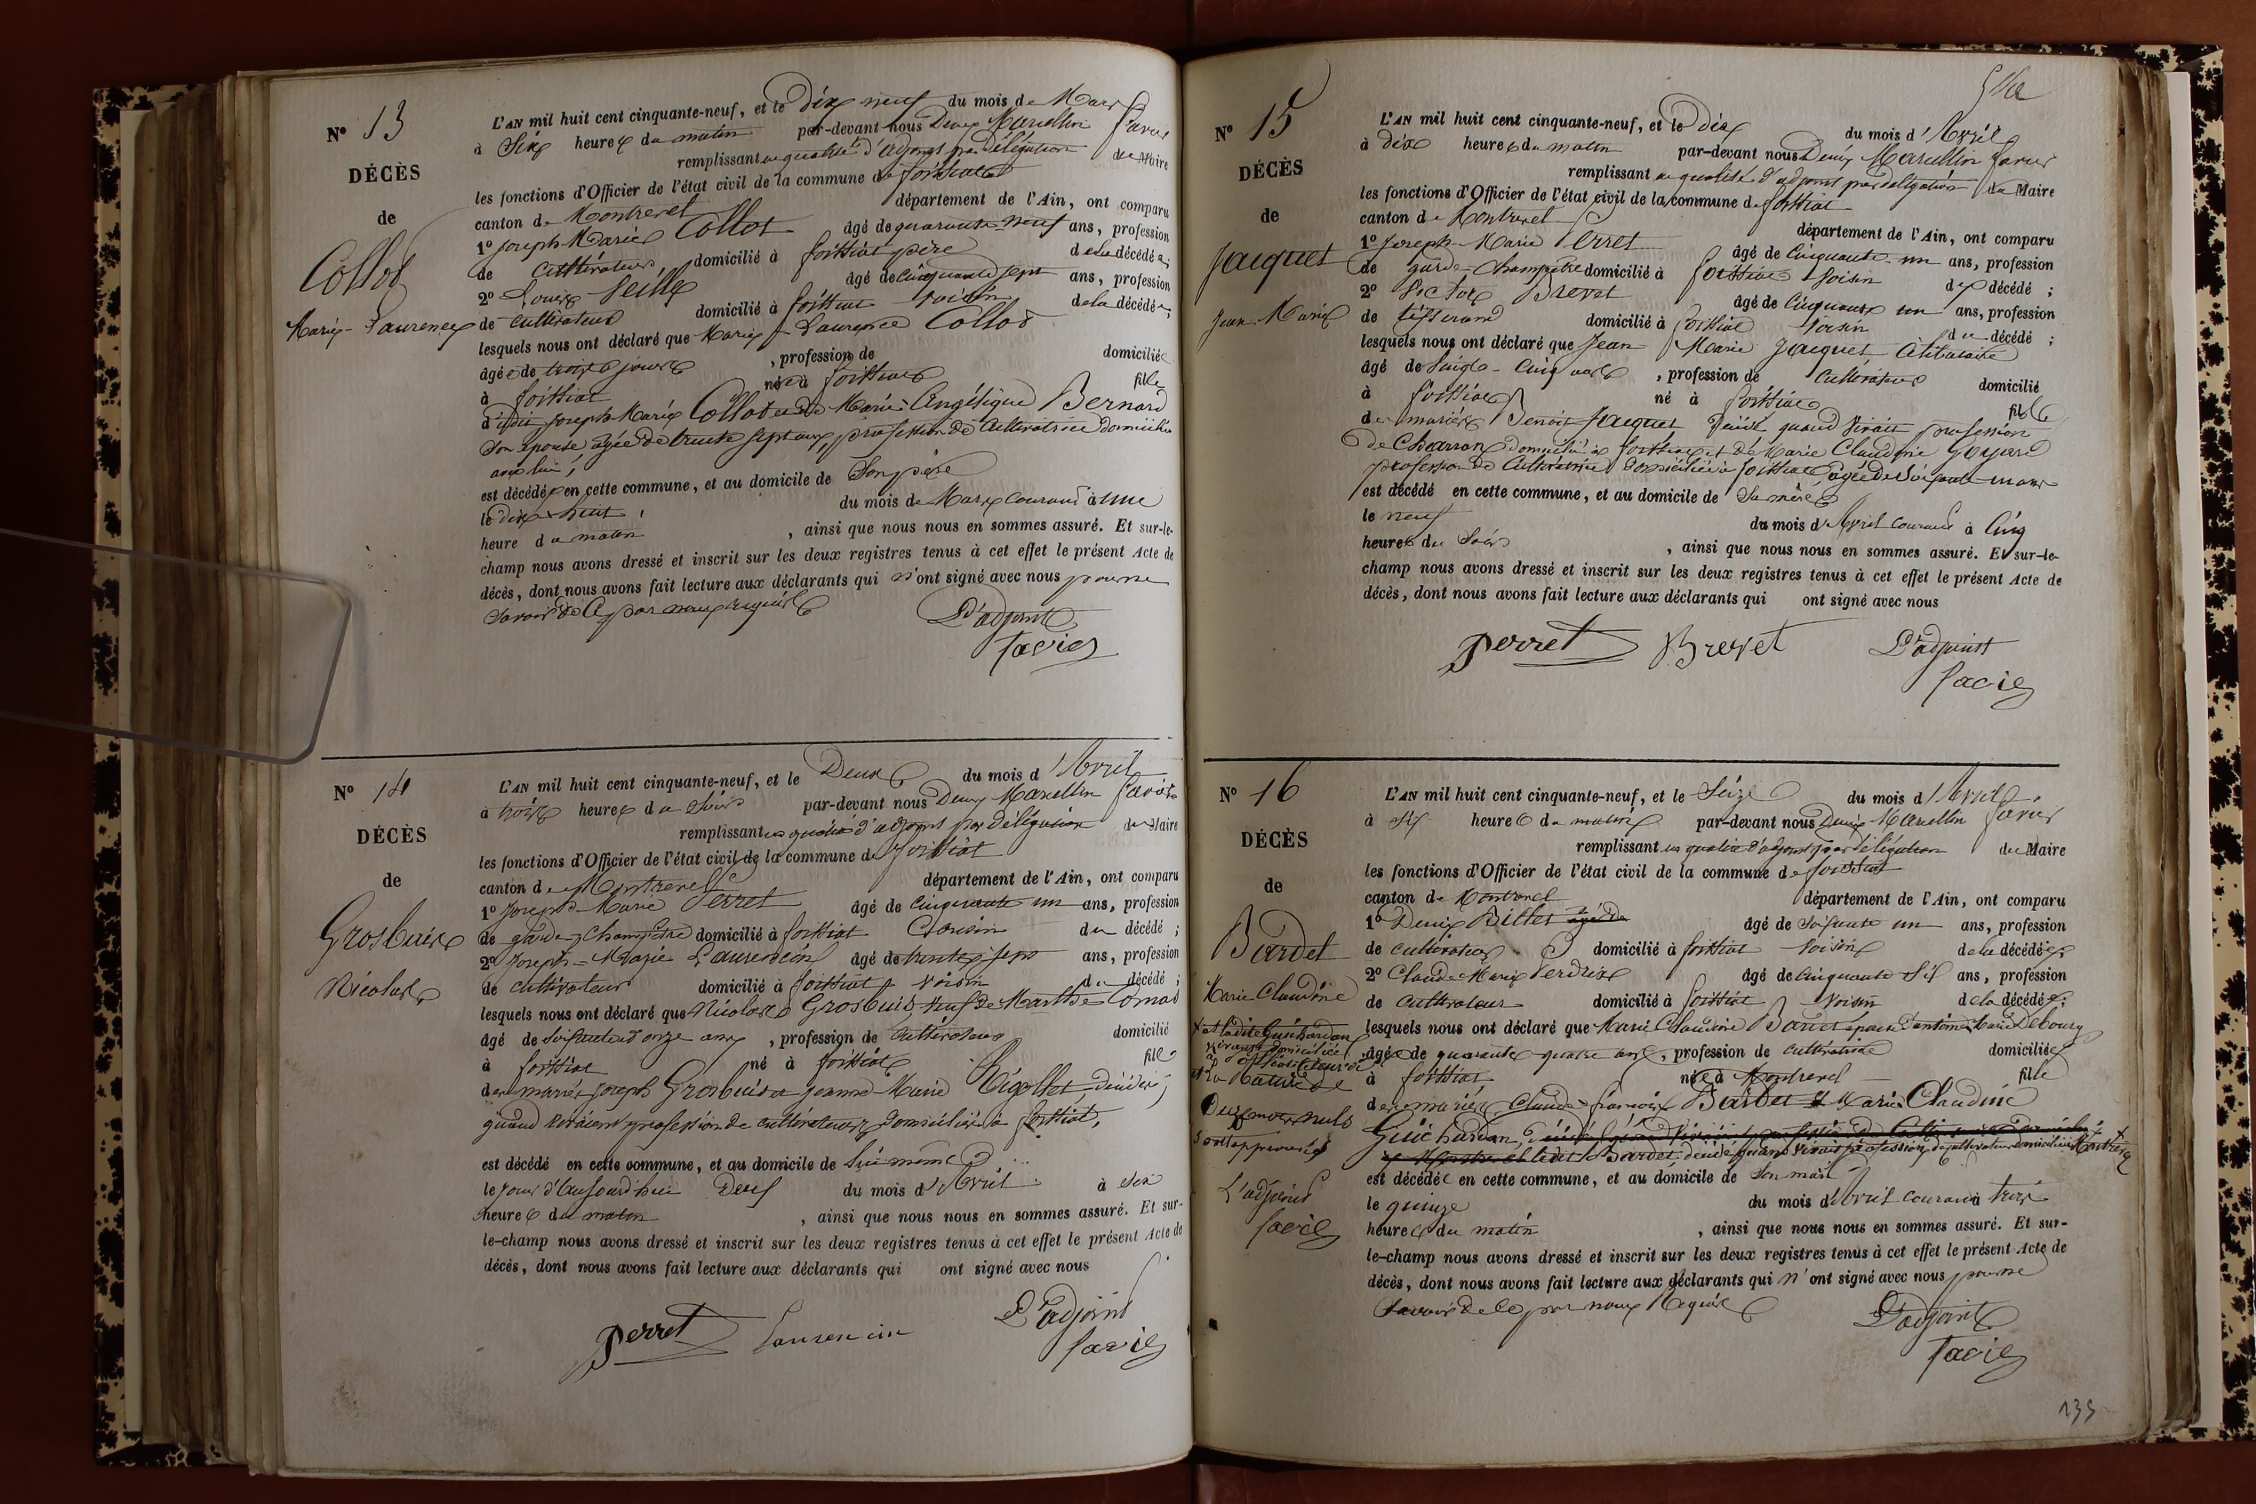 N° 13
DÉCÈS
de
Collod
Marie-Laurence
L'AN mil huit cent cinquante-neuf, et le Dix neuf du mois de Mars
à Six heures du matin par-devant nous Denis Marcellin Favier
remplissant en qualité d'adjoint par délégation du Maire
les fonctions d'Officier de l'état civil de la commune de foissiat
canton de Montrevel département de l'Ain, ont comparu
1° Joseph-Marie Collod âgé de quarante neuf ans, profession
de cultivateur, domicilié à foissiat père de la décédée;
2° Louis âgé de Cinquante sept ans, profession
de cultivateur domicilié à foissiat voisin de la décédée;
lesquels nous ont déclaré que Marie-Laurence Collod
âgée de trois jours , profession de domiciliée
à foissiat née à foissiat fille
dudit Joseph-Marie Collod et de Marie Angélique Bernard
Son épouse âgée de trente sept ans, profession de Cultivatrice domiciliée
avec lui;
est décédée en cette commune, et au domicile de Son père
le dix neuf du mois de Mars courant à une
heure du matin , ainsi que nous nous en sommes assuré. Et sur-le-
champ nous avons dressé et inscrit sur les deux registres tenus à cet effet le présent Acte de
décès, dont nous avons fait lecture aux déclarants qui n'ont signé avec nous pour ne
savoir de ce par nous requis
L'adjoint
favier
N° 14
DÉCÈS
de
Grosbuis
Nicolas
L'AN mil huit cent cinquante-neuf, et le Deux du mois d'Avril
à trois heures du Soir par-devant nous Denis Marcellin favier
remplissant en qualité d'adjoint par délégation du Maire
les fonctions d'Officier de l'état civil de la commune de foissiat
canton de Montrevel département de l'Ain, ont comparu
1° Joseph-Marie Perret âgé de Cinquante un ans, profession
de garde-champêtre domicilié à foissiat voisin du décédé;
2° Joseph-Marie Laurencin âgé de trente sept ans, profession
de cultivateur domicilié à foissiat voisin du décédé;
lesquels nous ont déclaré que Nicolas Grosbuis veuf de Marthe
âgé de soixante et onze ans , profession de cultivateur domicilié
à foissiat né à foissiat fils
des mariés Joseph Grosbuis et Jeanne-Marie Rigollet, décédés
quand vivaient profession de cultivateurs domiciliés à foissiat,
est décédé en cette commune, et au domicile de lui même
le jour d'aujourd'hui Deux du mois d'Avril à dix
heures du matin , ainsi que nous nous en sommes assuré. Et sur-
le-champ nous avons dressé et inscrit sur les deux registres tenus à cet effet le présent Acte de
décès, dont nous avons fait lecture aux déclarants qui ont signé avec nous
perret Laurencin L'adjoint
favier
N° 15
DÉCÈS
de
Jacquet
Jean-Marie
L'AN mil huit cent cinquante-neuf, et le dix du mois d'Avril
à dix heures du matin par-devant nous Denis Marcellin favier
remplissant en qualité d'adjoint par délégation du Maire
les fonctions d'Officier de l'état civil de la commune de foissiat
canton de Montrevel département de l'Ain, ont comparu
1° Joseph-Marie Perret âgé de Cinquante-un ans, profession
de garde-champêtre domicilié à foissiat voisin du décédé;
2° Victor Brevet âgé de Cinquante un ans, profession
de tisserand domicilié à foissiat voisin du décédé;
lesquels nous ont déclaré que Jean Marie Jacquet Célibataire
âgé de vingt-cinq ans , profession de cultivateur domicilié
à foissiat né à foissiat fils
des mariés Benoit Jacquet décédé quand vivait profession
de Charron domicilié à foissiat et de Marie Claudine Goyard
profession de cultivatrice domiciliée à foissiat, âgée de
est décédé en cette commune, et au domicile de Sa mère
le neuf du mois d'Avril courant à Cinq
heures du Soir , ainsi que nous nous en sommes assuré. Et sur-le-
champ nous avons dressé et inscrit sur les deux registres tenus à cet effet le présent Acte de
décès, dont nous avons fait lecture aux déclarants qui ont signé avec nous
perret Brevet L'adjoint
favier
N° 16
DÉCÈS
de
Bardet
Marie Claudine
et ladite Guichardan
vivante domiciliée
Deux mots nuls
sont approuvés
L'adjoint
favier
L'AN mil huit cent cinquante-neuf, et le Seize du mois d'Avril
à six heures du matin par-devant nous Denis Marcellin favier
remplissant en qualité d'adjoint par délégation du Maire
les fonctions d'Officier de l'état civil de la commune de foissiat
canton de Montrevel département de l'Ain, ont comparu
1° Denis Billet âgé de soixante un ans, profession
de cultivateur domicilié à foissiat voisin de la décédée;
2° Claude Marie Perdrix âgé de cinquante six ans, profession
de cultivateur domicilié à foissiat voisin de la décédée;
lesquels nous ont déclaré que Marie Claudine Bardet épouse d'antoine Marie Debourg
âgée de quarante quatre ans, profession de cultivatrice domiciliée
à foissiat née à Montrevel fille
des mariés Claude françois Bardet et Marie Claudine
Guichardan,
ledit Bardet décédé quand vivait profession de cultivateur domicilié à Montrevel
est décédée en cette commune, et au domicile de Son mari
le quinze du mois d'Avril courant à trois
heures du matin , ainsi que nous nous en sommes assuré. Et sur-
le-champ nous avons dressé et inscrit sur les deux registres tenus à cet effet le présent Acte de
décès, dont nous avons fait lecture aux déclarants qui n'ont signé avec nous pour ne
savoir de ce par nous requis
L'adjoint
favier
139